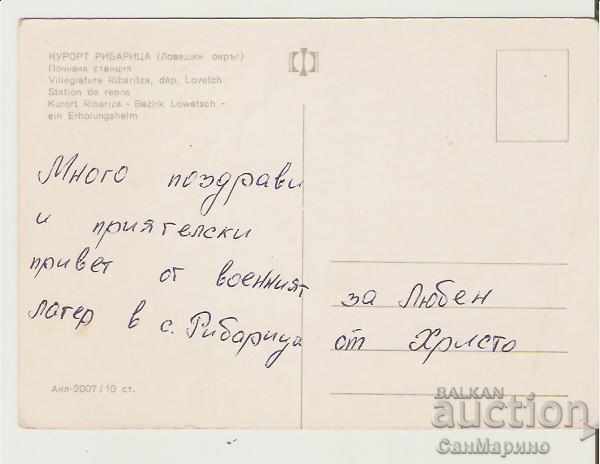 КУРОРТ РИБАРИЦА (Ловешки окръг)
Почивна станция
Villégiature Ribaritza, dép. Lovetch
Station de repos
Kurort Ribariza - Bezirk Lowetsch -
ein Erholungsheim
Много поздрави
и приятелски
привет от военният
лагер в с. Рибарица
за Любен
от Христо
Акл-2007/10 ст.
BALKAN
auction
СанМарино